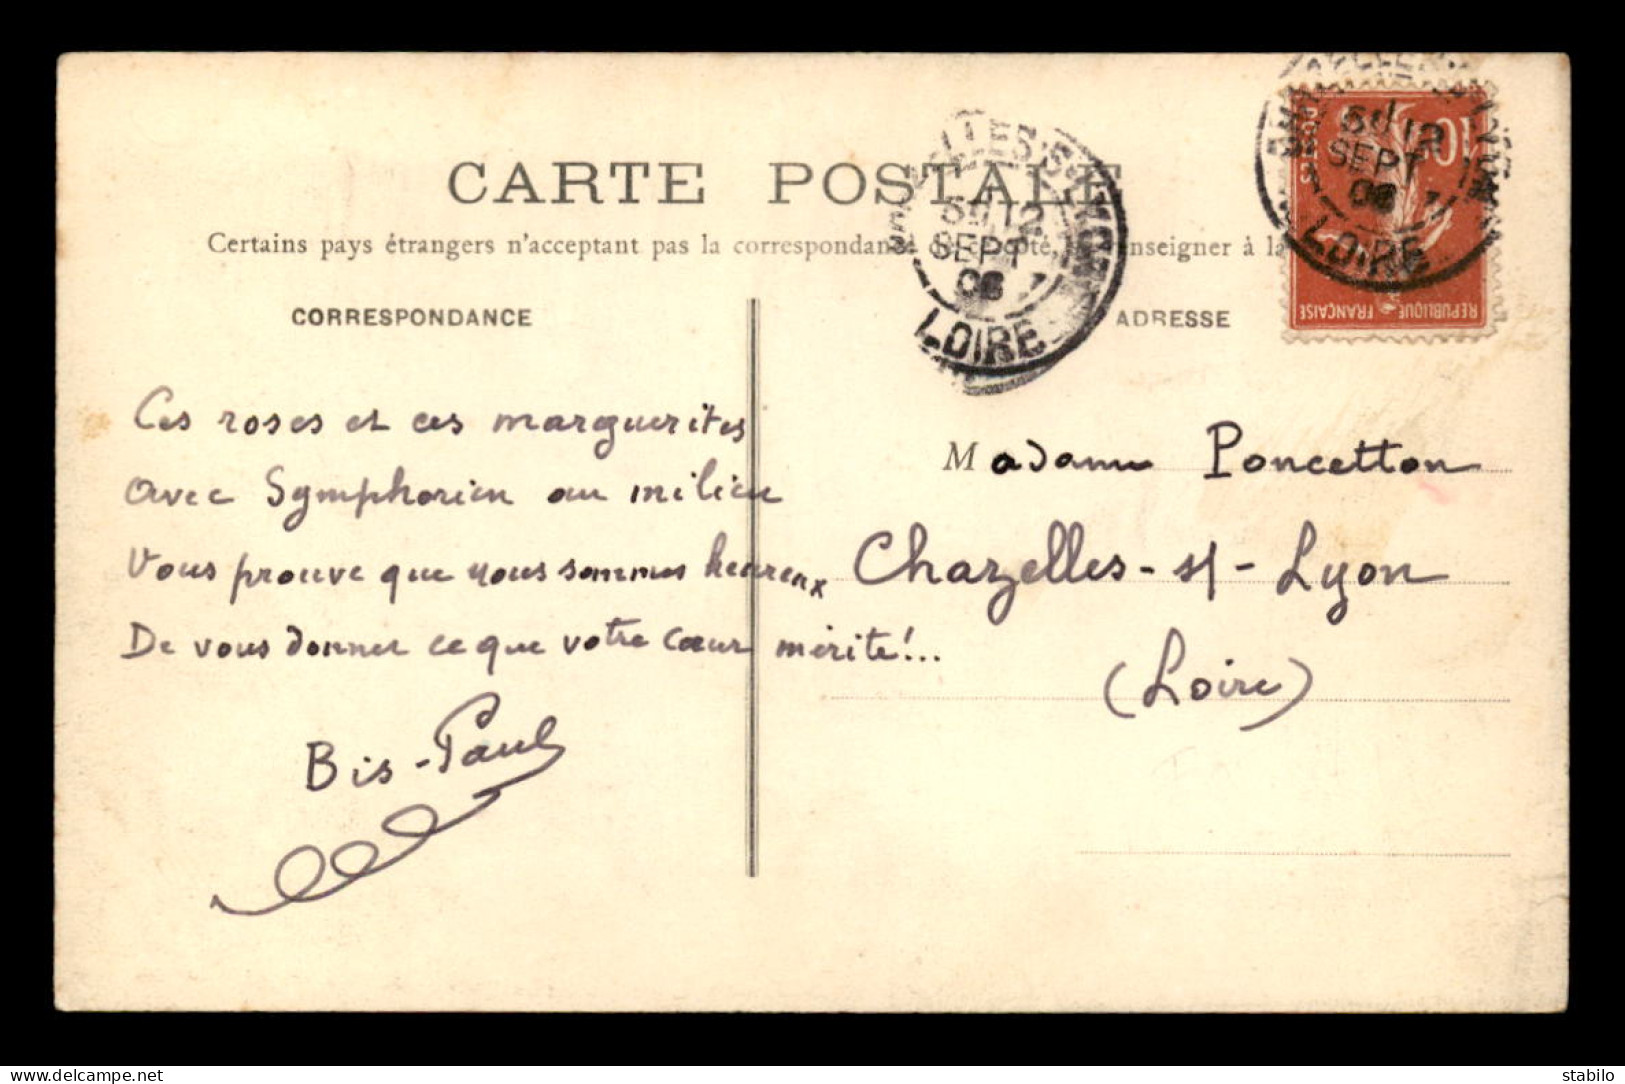 CARTE POSTALE
Certains pays étrangers n'acceptant pas la correspondance de côté, enseigner à la
CORRESPONDANCE
ADRESSE
Ces roses et ces marguerites
avec Symphorien au milieu
Vous prouve que nous sommes heureux
De vous donner ce que votre cœur mérite!..
Bis-Paul
Madame Poncetton
Chazelles-s/-Lyon
(Loire)
ELLES S LYON
5E 12
SEPT
08
LOIRE
5E 12
SEPT
08
LOIRE
10
POSTES
REPUBLIQUE FRANÇAISE
Delcampe.net
stabilo